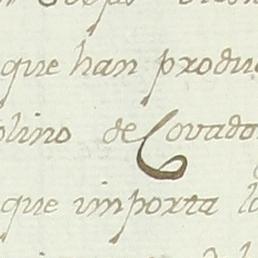 que han produ
olino de Covado
que importa l